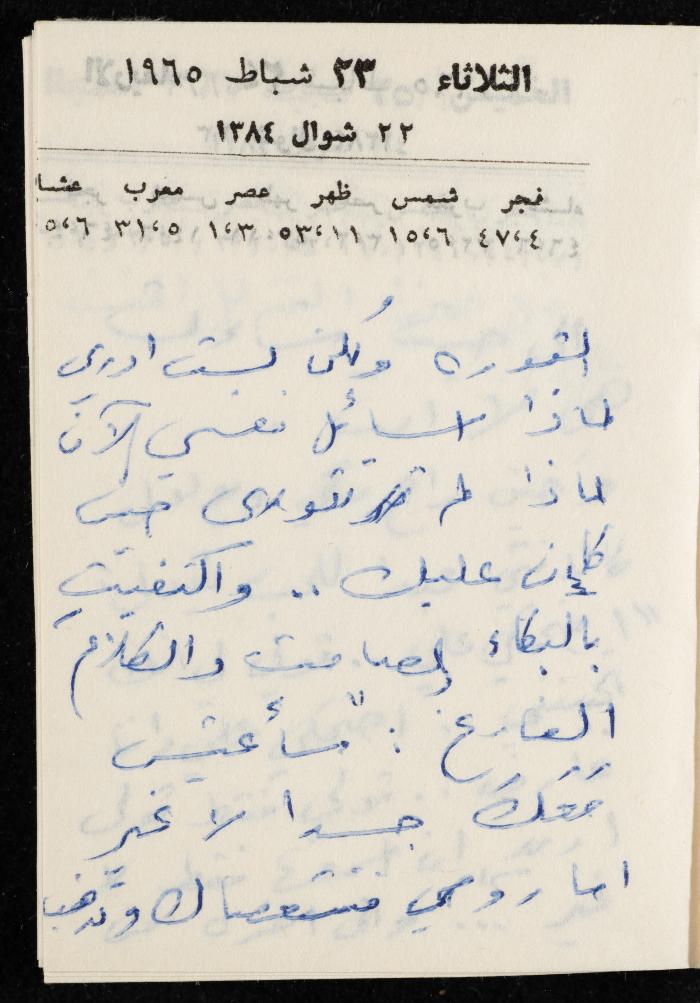 الثلاثاء ٢٣ شباط ١٩٦٥
٢٢ شوال ١٣٨٤
فجر شمس ظهر عصر مغرب عشا
٤٧،٤ ١٥،٦ ٥٣،١١ ١،٣ ٣١،٥ ٥،٦
الثورة ولكن لست ادري
لماذا اسائل نفسي الآن
لماذا لم تثوري حين
كان عليك .. واكتفيتِ
بالبكاء الصامت والكلام
الفارغ : "سأعيش
مَعَكَ جسدا لا غير
اما روحي فستعصاك وتذهب